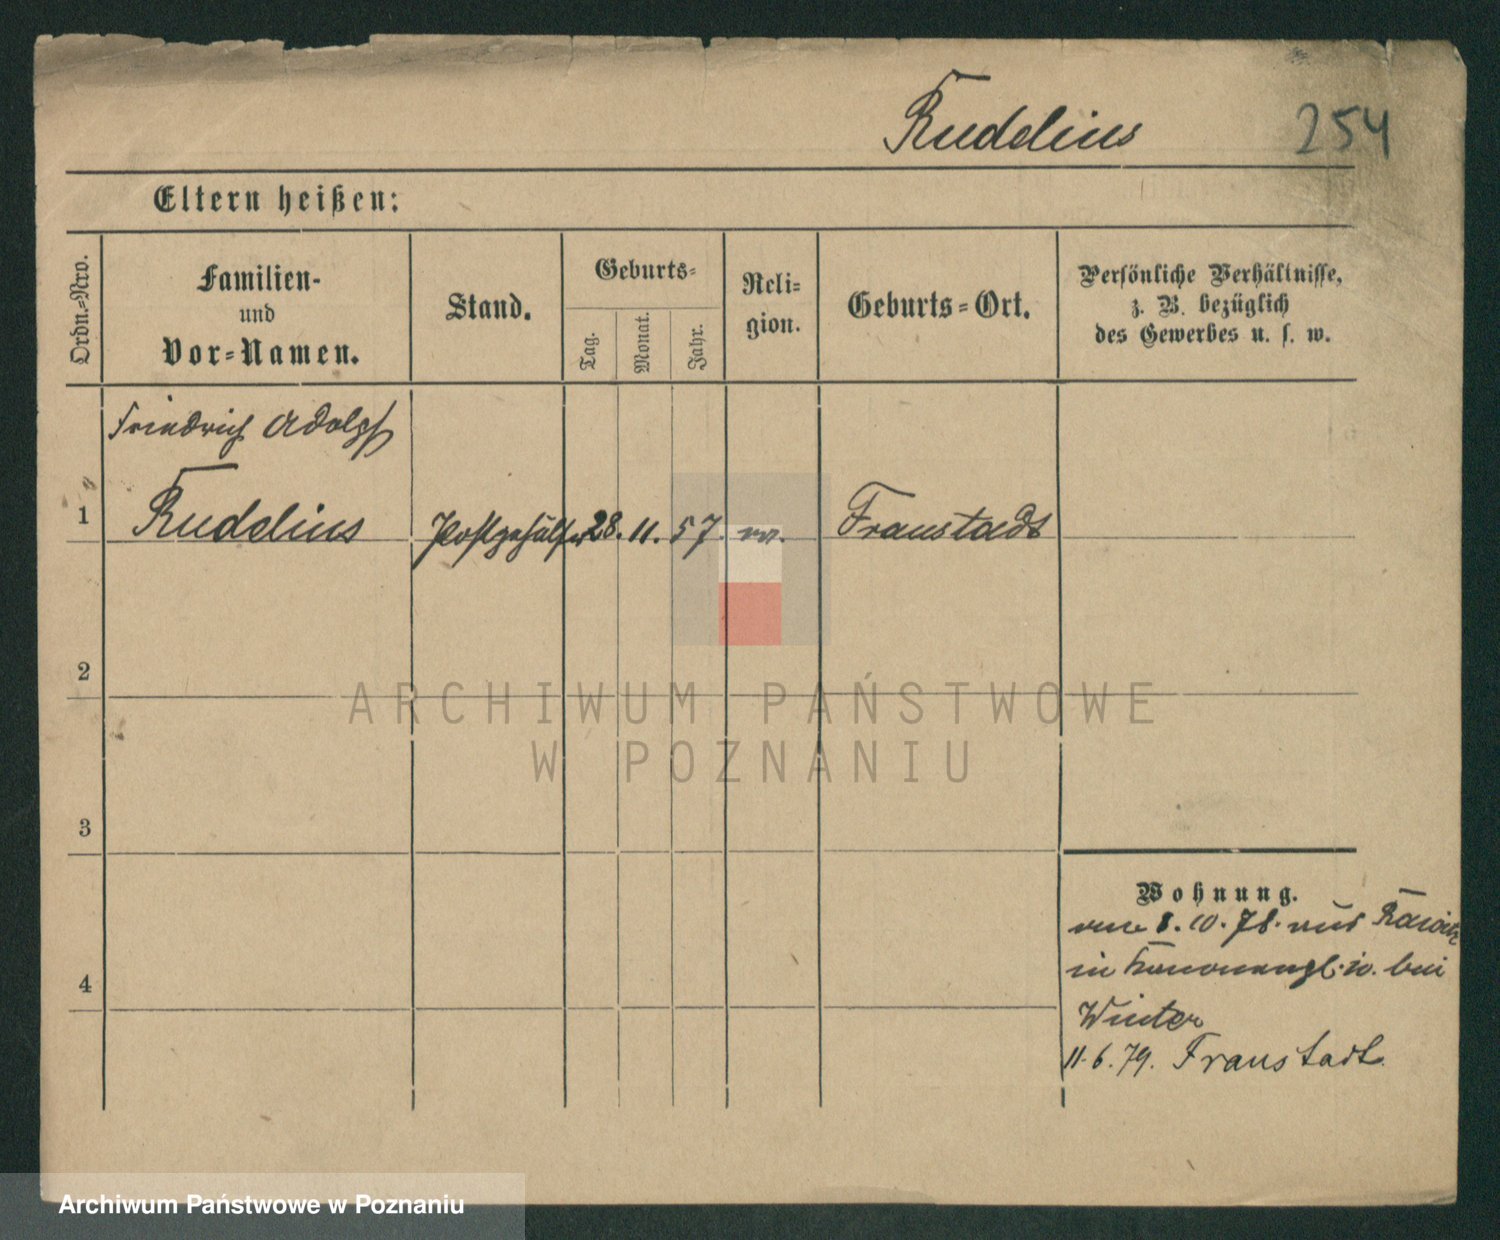 Rudelius 254
Eltern heißen:
Ordn.=Nro.
Familien-
und
Vor=Namen.
Stand.
Geburts=
Tag.
Monat.
Jahr.
Reli=
gion.
Geburts=Ort.
Persönliche Verhältnisse,
z. B. bezüglich
des Gewerbes u. s. w.
Friedrich Adolph
1 Rudelius Postgehülfe 28. 11. 57. ev. Fraustadt
2
3
4
Wohnung.
8. 10. 78. aus Rawitz
in bei
Winter
11. 6. 79. Fraustadt
ARCHIWUM PAŃSTWOWE
W POZNANIU
Archiwum Państwowe w Poznaniu